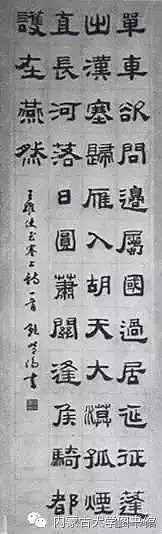 單車欲問邊屬國過居延征蓬
出漢塞歸雁入胡天大漠孤煙
直長河落日圓蕭關逢侯騎都
護在燕然
王維使至塞上詩一首 書
内蒙古大学图书馆